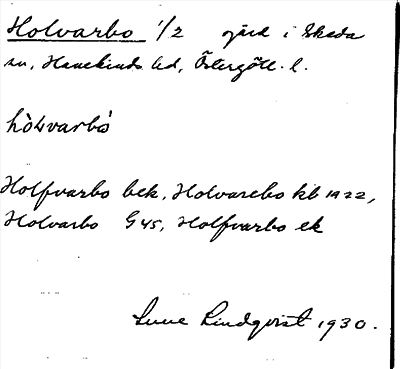 Holvarbo 1/2 gård i Skeda
sn, Hanekinds hd, Östergötl. l.
hòlvarbó
Holfvarbo bek, Holvarebo kb 1922,
Holvarbo G45, Holfvarbo ek
Sune Lindqvist 1930.